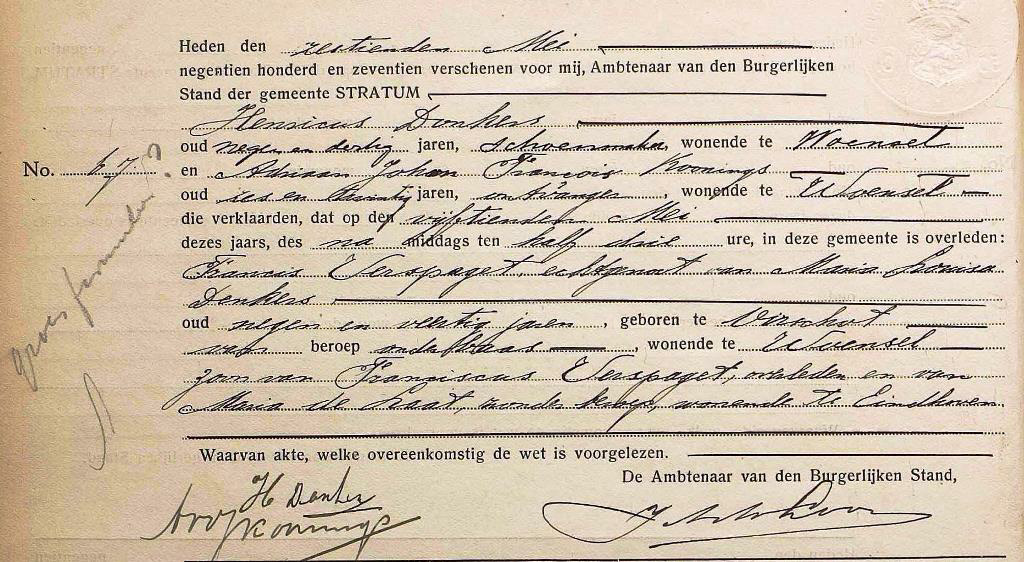 Heden den zestienden Mei
negentien honderd en zeventien verschenen voor mij, Ambtenaar van den Burgerlijken
Stand der gemeente STRATUM
Henricus Donkers
oud negen en dertig jaren, schoenmaker, wonende te Woensel
No. 67
en Adriaan Johan François Konings
oud zes en twintig jaren, ontvanger, wonende te Woensel
die verklaarden, dat op den vijftienden Mei
dezes jaars, des na middags ten half drie ure, in deze gemeente is overleden:
Francis Verspaget, echtgenoot van Maria Louisa
Donkers
oud negen en veertig jaren, geboren te
van beroep onderbaas, wonende te Woensel
zoon van Franciscus Verspaget, overleden en van
Maria de Laat, zonder beroep, wonende te Eindhoven.
Waarvan akte, welke overeenkomstig de wet is voorgelezen.
De Ambtenaar van den Burgerlijken Stand,
H Donkers
Konings